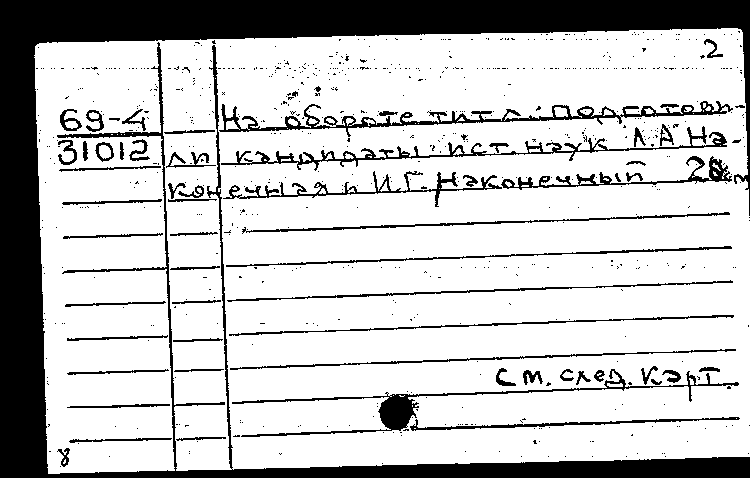 .2
69-4 На обороте тит. л.: Подготови-
31012 ли кандидаты ист. наук Л.А. На-
конечная и И.Г. Наконечный 28 см
См. след. карт.
8